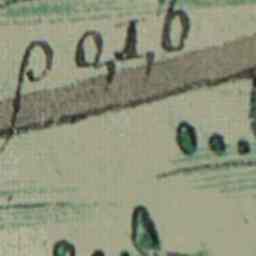 ρ 0,1,6